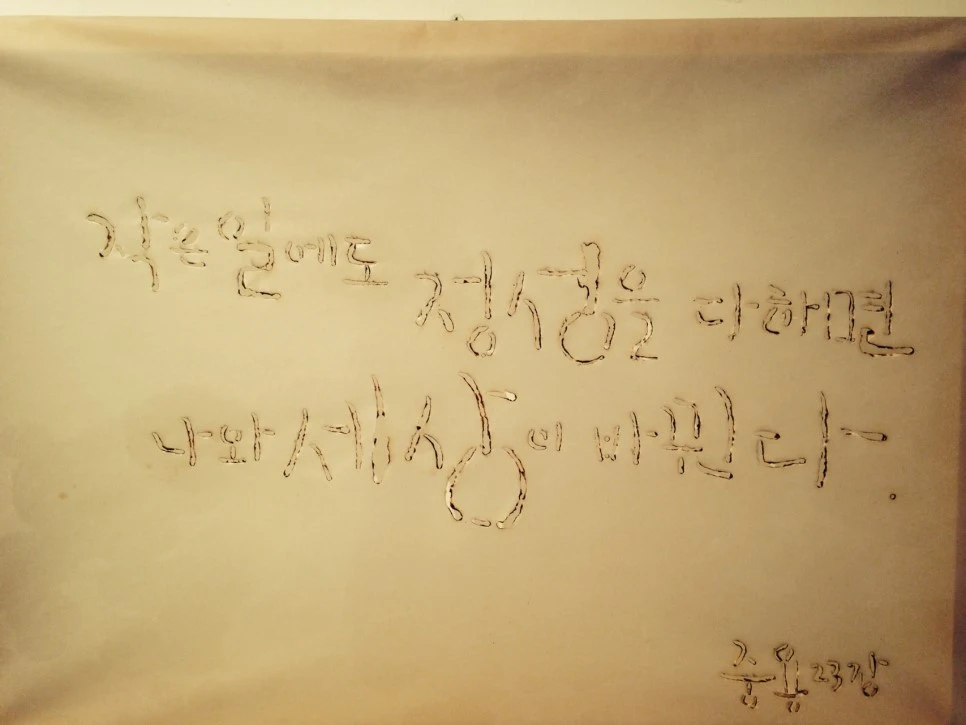 작은 일에도 정성을 다하면
나와 세상이 바뀐다.
중용 23장